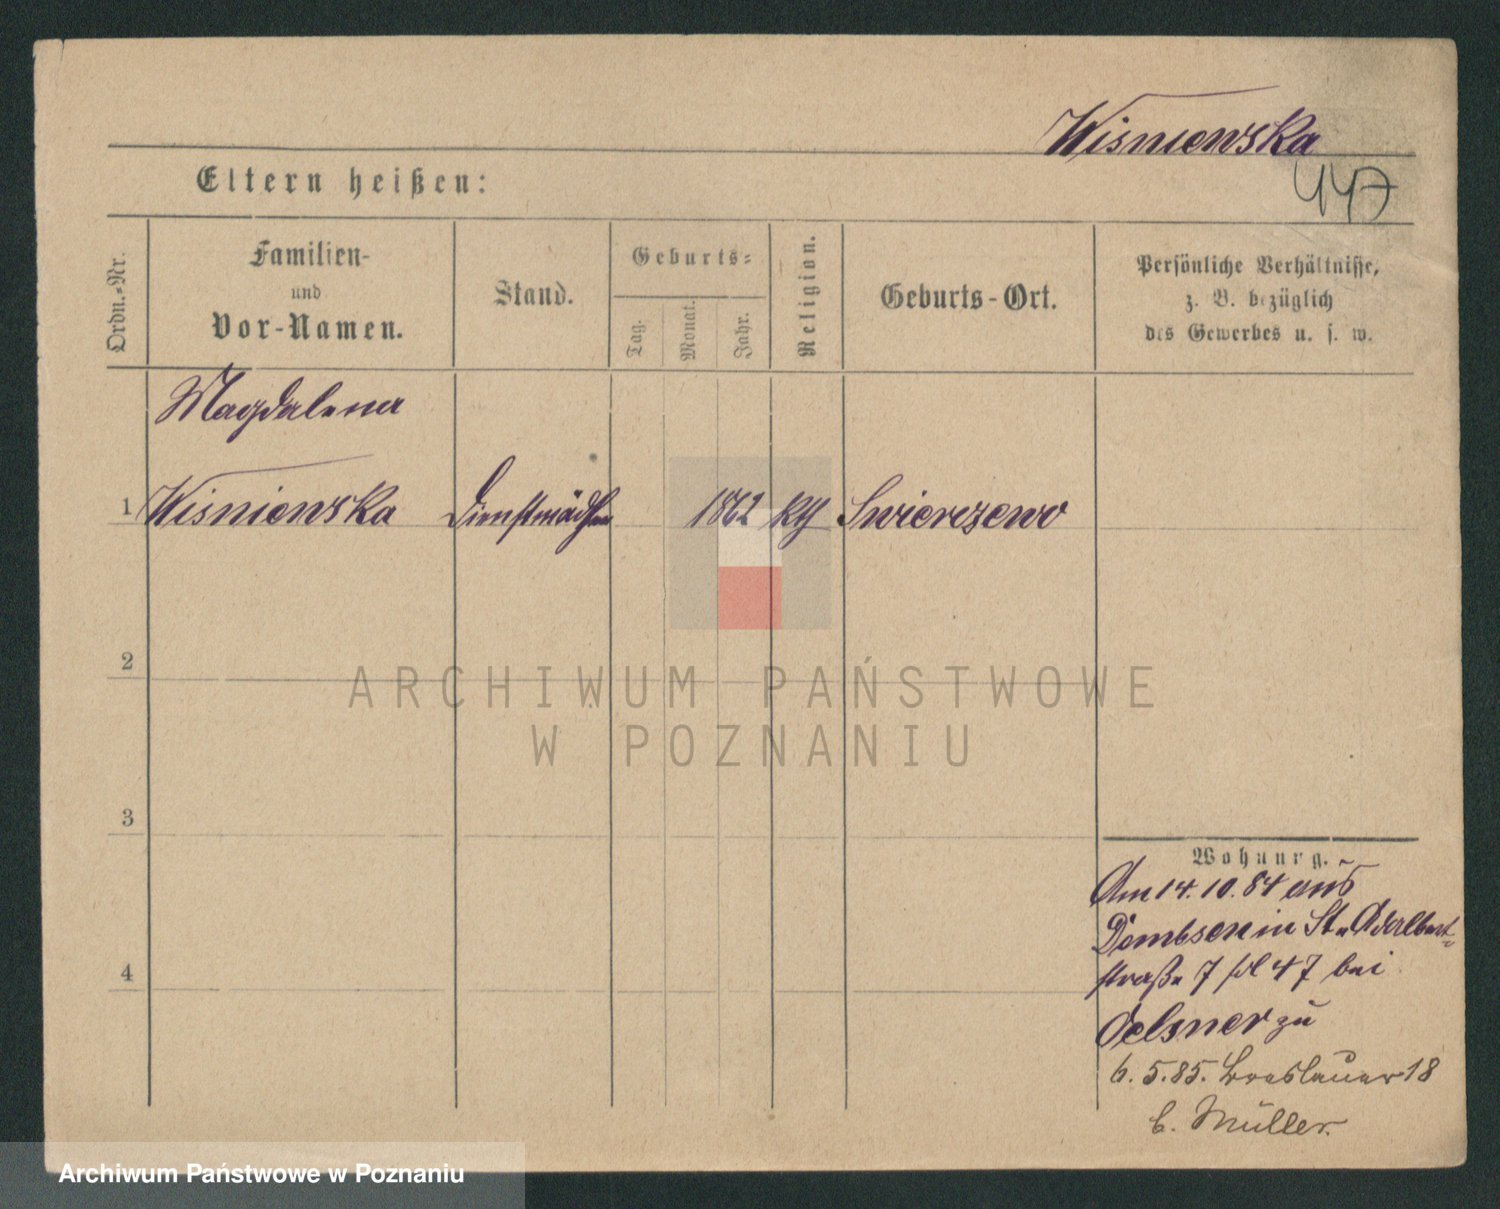 Wiśniewska
Eltern heißen:
447
Ordn.-Nr.
Familien-
und
Vor-Namen.
Stand.
Geburts-
Tag.
Monat.
Jahr.
Religion.
Geburts-Ort.
Persönliche Verhältnisse,
z. B. bezüglich
des Gewerbes u. s. w.
Magdalena
1 Wiśniewska Dienstmädchen 1862 kth Swierczewo
2
ARCHIWUM PAŃSTWOWE
W POZNANIU
3
Wohnung.
Am 14.10.84 aus
Dembsen in St. Adalbert-
straße 7 47 bei
Oelsner zu
4
6.5.85. Breslauer 18
b. Müller.
Archiwum Państwowe w Poznaniu